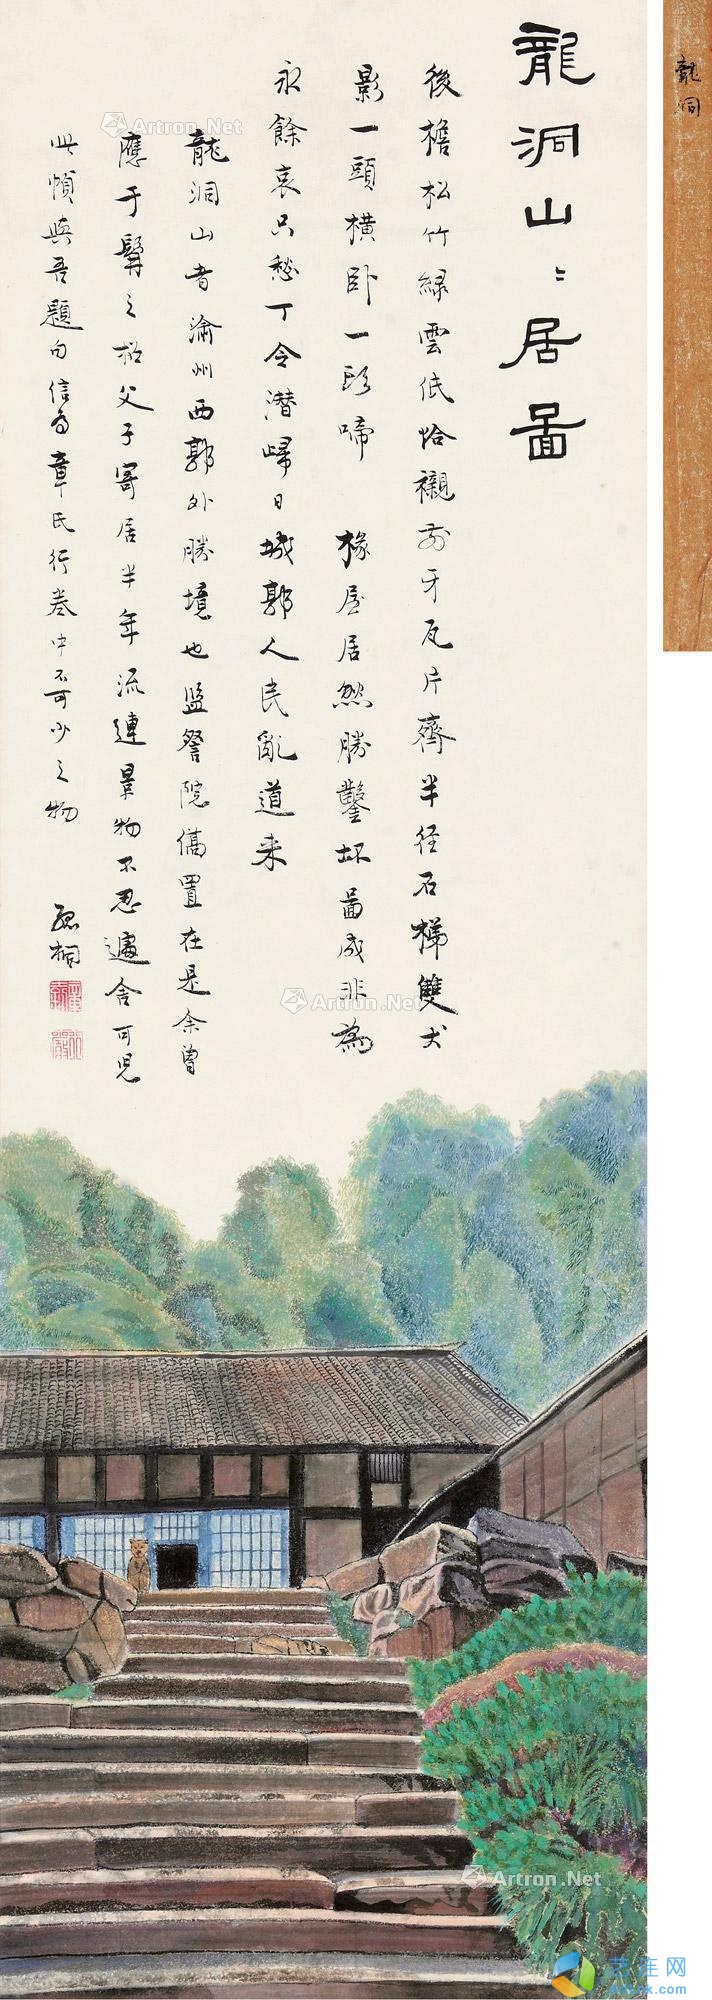 龍洞
龍洞山〻居圖
後檐松竹緑雲低恰襯前牙瓦片齊半径石梯雙犬
影一頭橫卧一頭啼 椽屋居然勝鑿坏圖成非為
永餘哀只愁丁令潛歸日城郭人民亂道来
龍洞山者渝州西郭外勝境也監察院僑置在是余曾
應于髯之招父子寄居半年流連景物不忍遽舍可児
此幀與吾題句信為章氏行卷中不可少之物
孤桐
Artron.Net
Artron.Net
Artron.Net
Artron.Net
艺连网